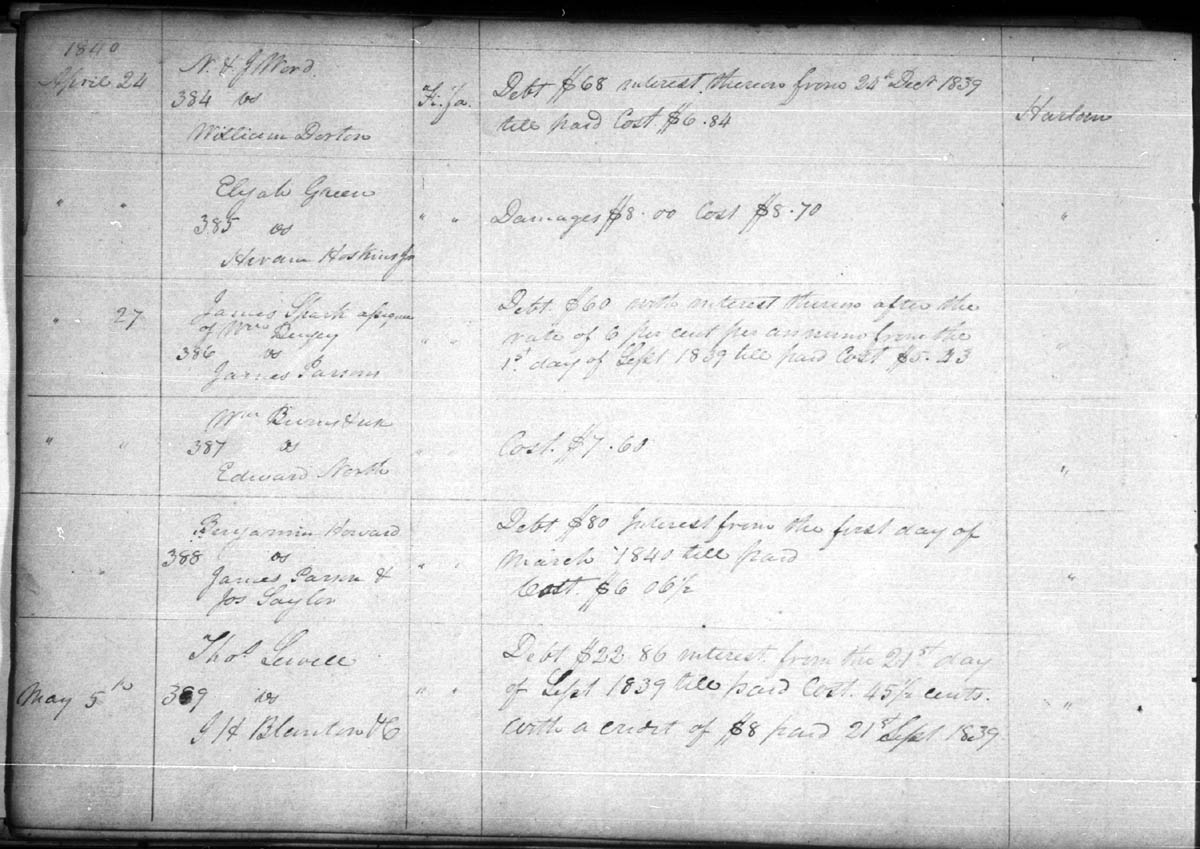 1840
April 24
N. & J Word
384 vs
William Dorton
Fi. fa.
Debt $68 interest thereon from 24th Decr 1839
till paid Cost $6.84
Harlan
" "
Elijah Green
385 vs
Hiram Hoskins Jr
" "
Damages $8.00 Cost $8.70
"
" 27
James Spark assignee
of Wm
386 vs
James Parsons
" "
Debt $60 with interest thereon after the
rate of 6 per cent per annum from the
1st day of Sept 1839 till paid Cost $5.23
"
" "
Wm
387 vs
Edward North
" "
Cost $7.60
"
"
Benjamin Howard
388 vs
James Parson &
Jos Saylor
" "
Debt $80 Interest from the first day of
March 1840 till paid
Cost $6 06½
"
May 5th
Thos Lewell
389 vs
J H Blanton & C
" "
Debt $22 86 interest from the 21st day
of Sept 1839 till paid Cost 45½ cents.
With a credit of $8 paid 21st Sept 1839
"